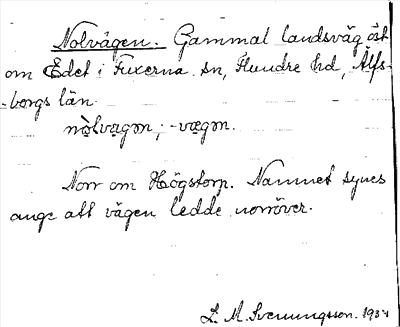 Nolvägen. Gammal landsväg öst
om Edet i Fuxerna sn, Flundre hd, Älfs-
-borgs län.
nọ̀lvạgən, -vægən.
Norr om Högstorp. Namnet synes
ange att vägen ledde norröver.
L. M. Svenungsson. 1934